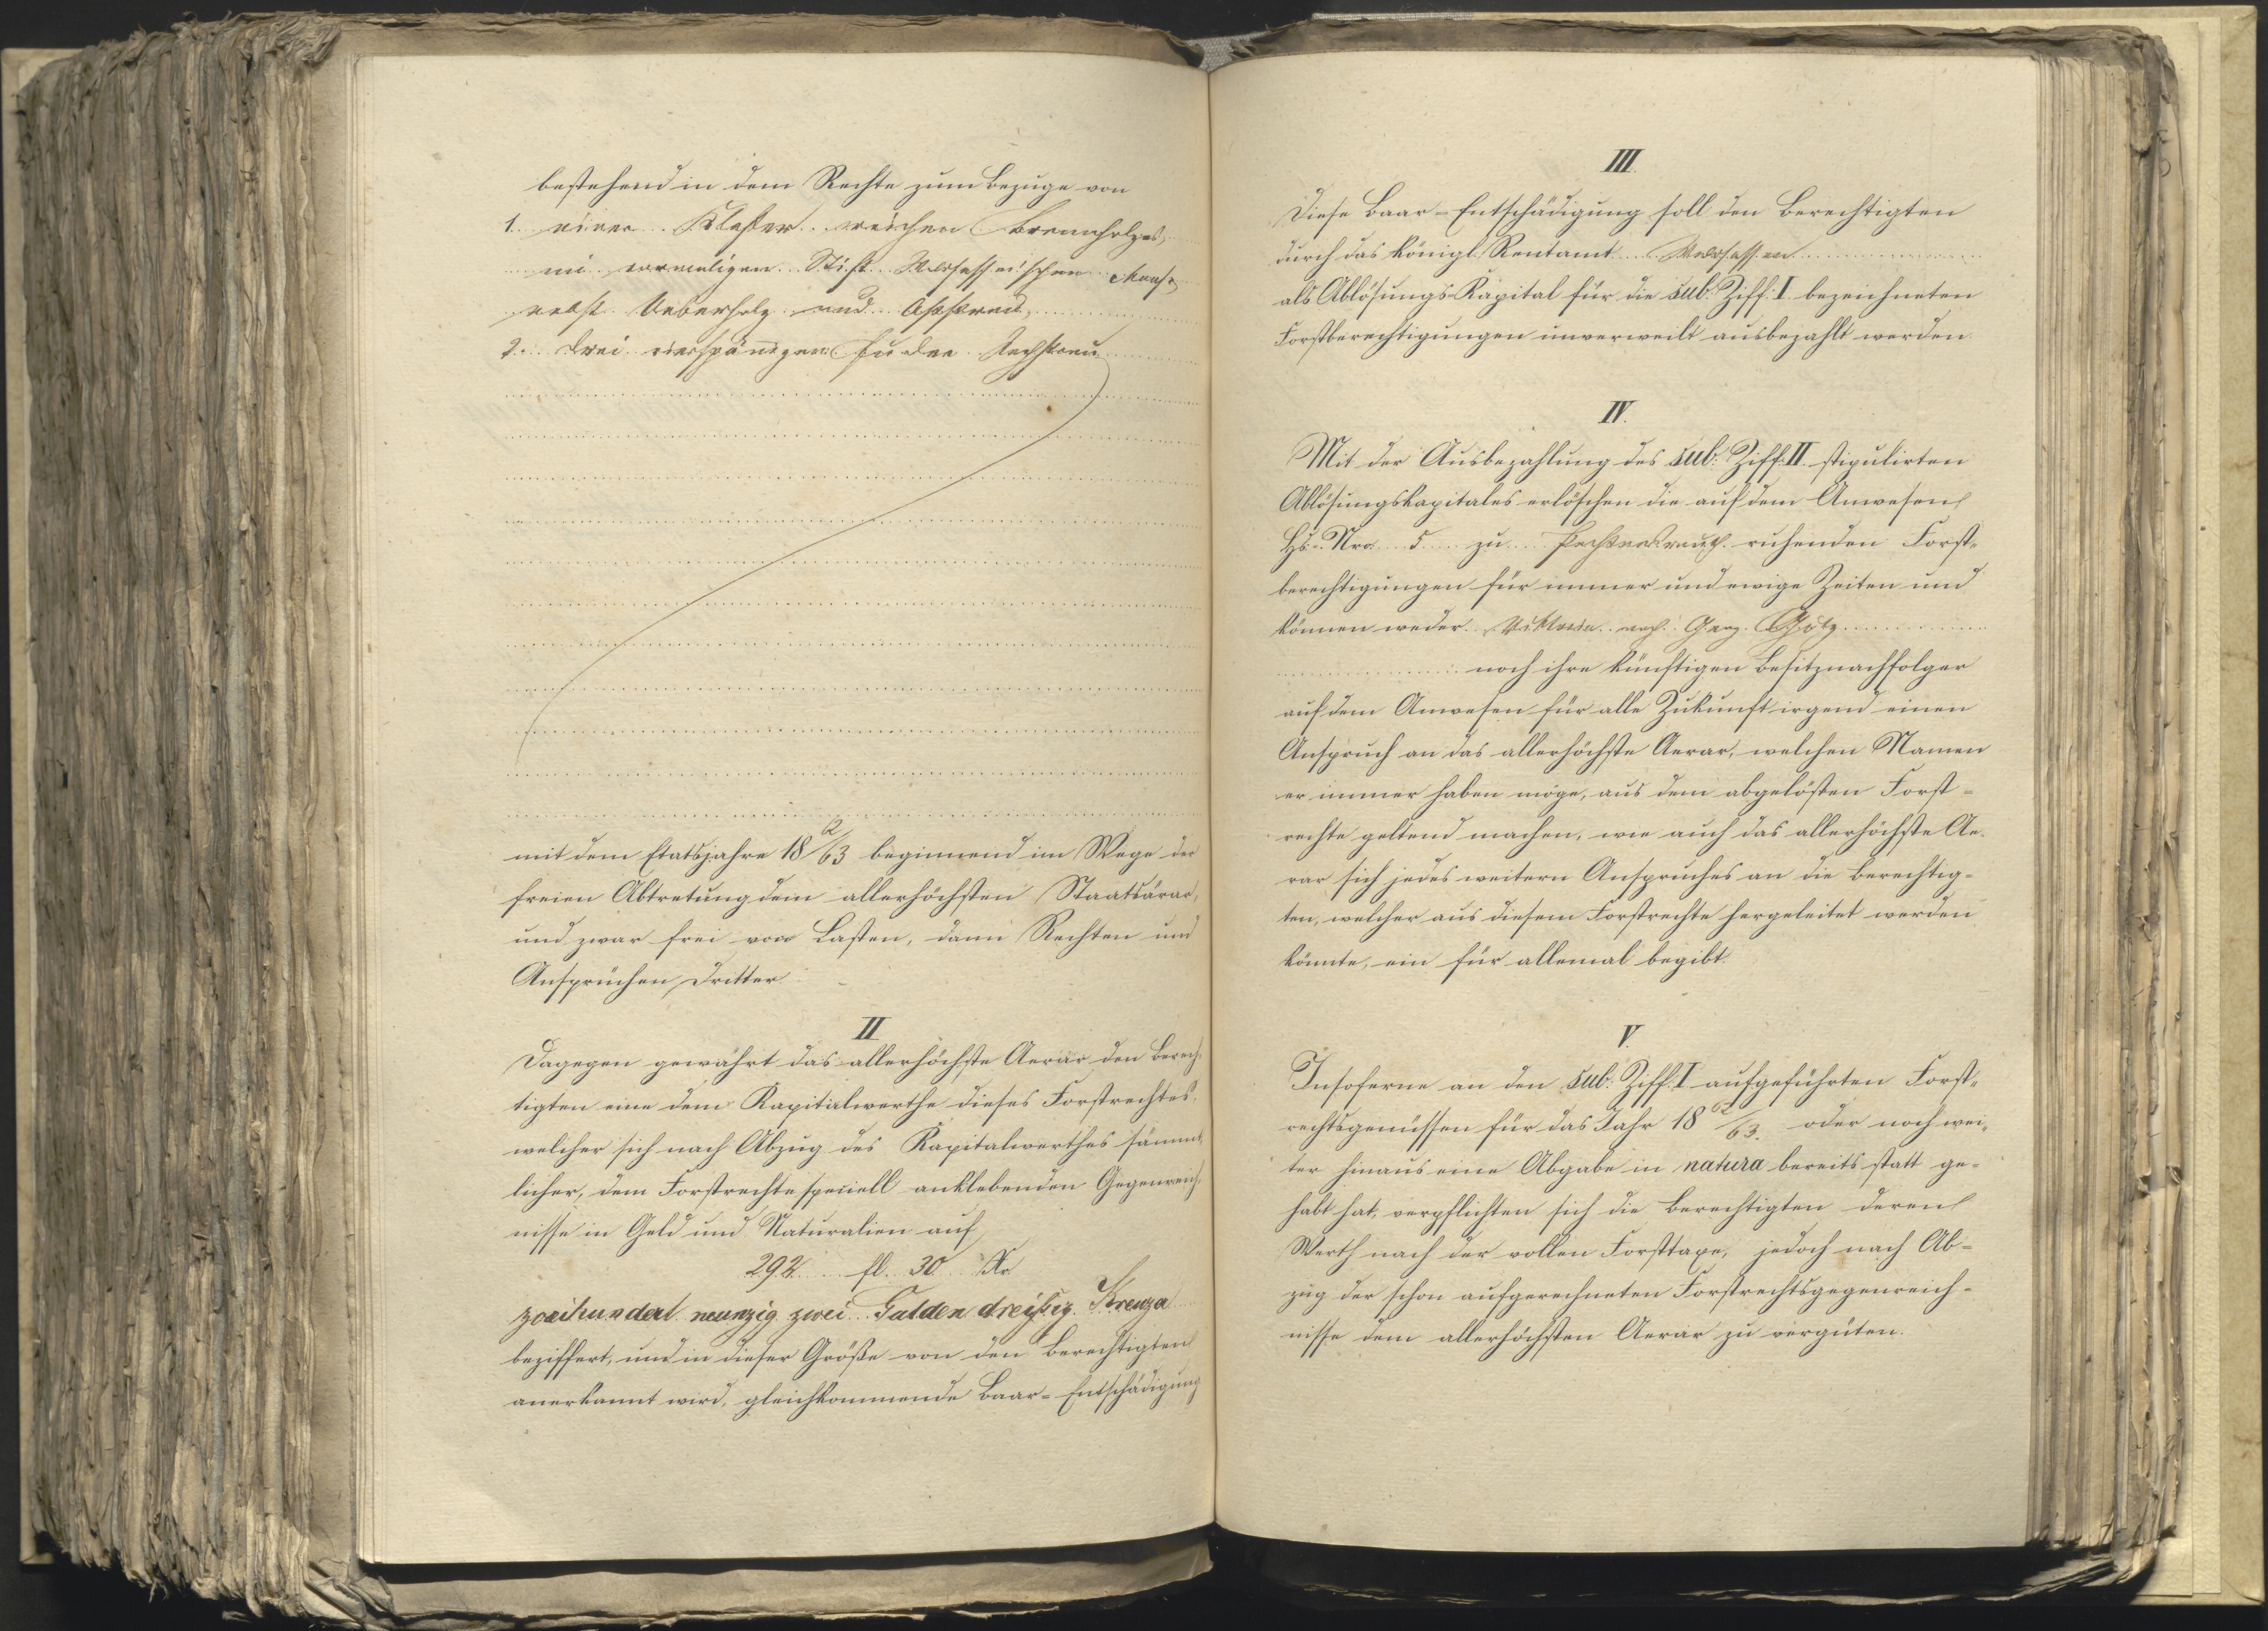 bestehend in dem Rechte zum Bezuge von
1. einer Klafter weichen Brennholzes,
im vormaligen Stift Waldsassen'schen Maase,
nebst Ueberholz und Aststreu,
2. drei vierspänigen Fuder Rechstreu
mit dem Etatsjahre 18 62/63 beginnend im Wege der
freien Abtretung dem allerhöchsten Staatsärar,
und zwar frei von Lasten, dann Rechten und
Ansprüchen Dritter.
II
Dagegen gewährt das allerhöchste Aerar den Berech-
tigten eine dem Kapitalwerthe dieses Forstrechtes,
welcher sich nach Abzug des Kapitalwerthes sämmt-
licher, dem Forstrechte speciell anklebenden Gegenreich-
nisse in Geld und Naturalien auf
292 fl. 30 Kr
zweihundert neunzig zwei Gulden dreißig Kreuzer
beziffert, und in dieser Größe von den Berechtigten
anerkannt wird, gleichkommende Baar-Entschädigung
III.
Diese Baar-Entschädigung soll den Berechtigten
durch das königl. Rentamt Waldsassen
als Ablösungs-Kapital für die sub. Ziff. I. bezeichneten
Forstberechtigungen unverweilt ausbezahlt werden.
IV.
Mit der Ausbezahlung des sub. Ziff. II. stipulirten
Ablösungskapitales erlöschen die auf dem Anwesen
Hs. Nro. 5 zu Pechtnersreuth ruhenden Forst-
berechtigungen für immer und ewige Zeiten und
können weder Viktoria Götz
noch ihre künftigen Besitznachfolger
auf dem Anwesen für alle Zukunft irgend einen
Anspruch an das allerhöchste Aerar, welchen Namen
er immer haben möge, aus dem abgelösten Forst-
rechte geltend machen, wie auch das allerhöchste Ae-
rar sich jedes weitern Anspruches an die Berechtig-
ten, welcher aus diesem Forstrechte hergeleitet werden
könnte, ein für allemal begibt.
V.
Insoferne an den sub. Ziff. I aufgeführten Forst-
rechtsgenüssen für das Jahr 18 62/63. oder noch wei-
ter hinaus eine Abgabe in natura bereits statt ge-
habt hat, verpflichten sich die Berechtigten deren
Werth nach der vollen Forsttaxe, jedoch nach Ab-
zug der schon aufgerechneten Forstrechtsgegenreich-
nisse dem allerhöchsten Aerar zu vergüten.